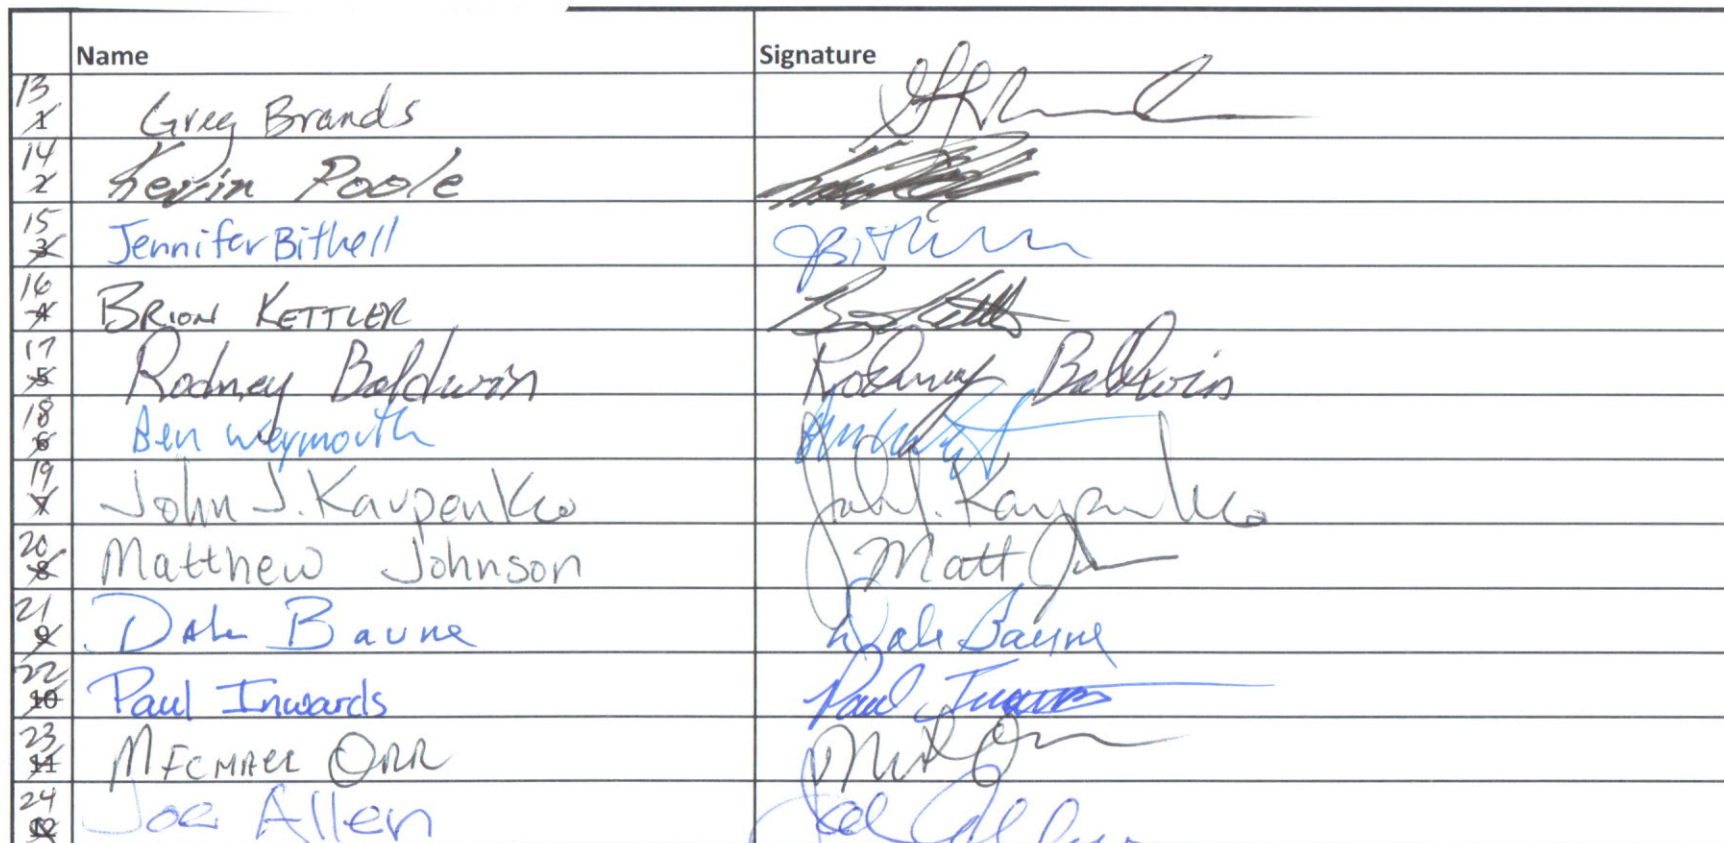 Name Signature
13 1 Greg Brands
14 2 Kevin Poole
15 3 Jennifer Bithell JBith
16 4 BRION KETTLER
17 5 Rodney Baldwin Rodney Baldwin
18 6 Ben Weymouth
19 7 John J. Karpenko John J. Karpenko
20 8 Matthew Johnson Matt J
21 9 Dale Baune Dale Baune
22 10 Paul Inwards Paul Inwards
23 11 MICHAEL ORR
24 12 Joe Allen Joe Allen